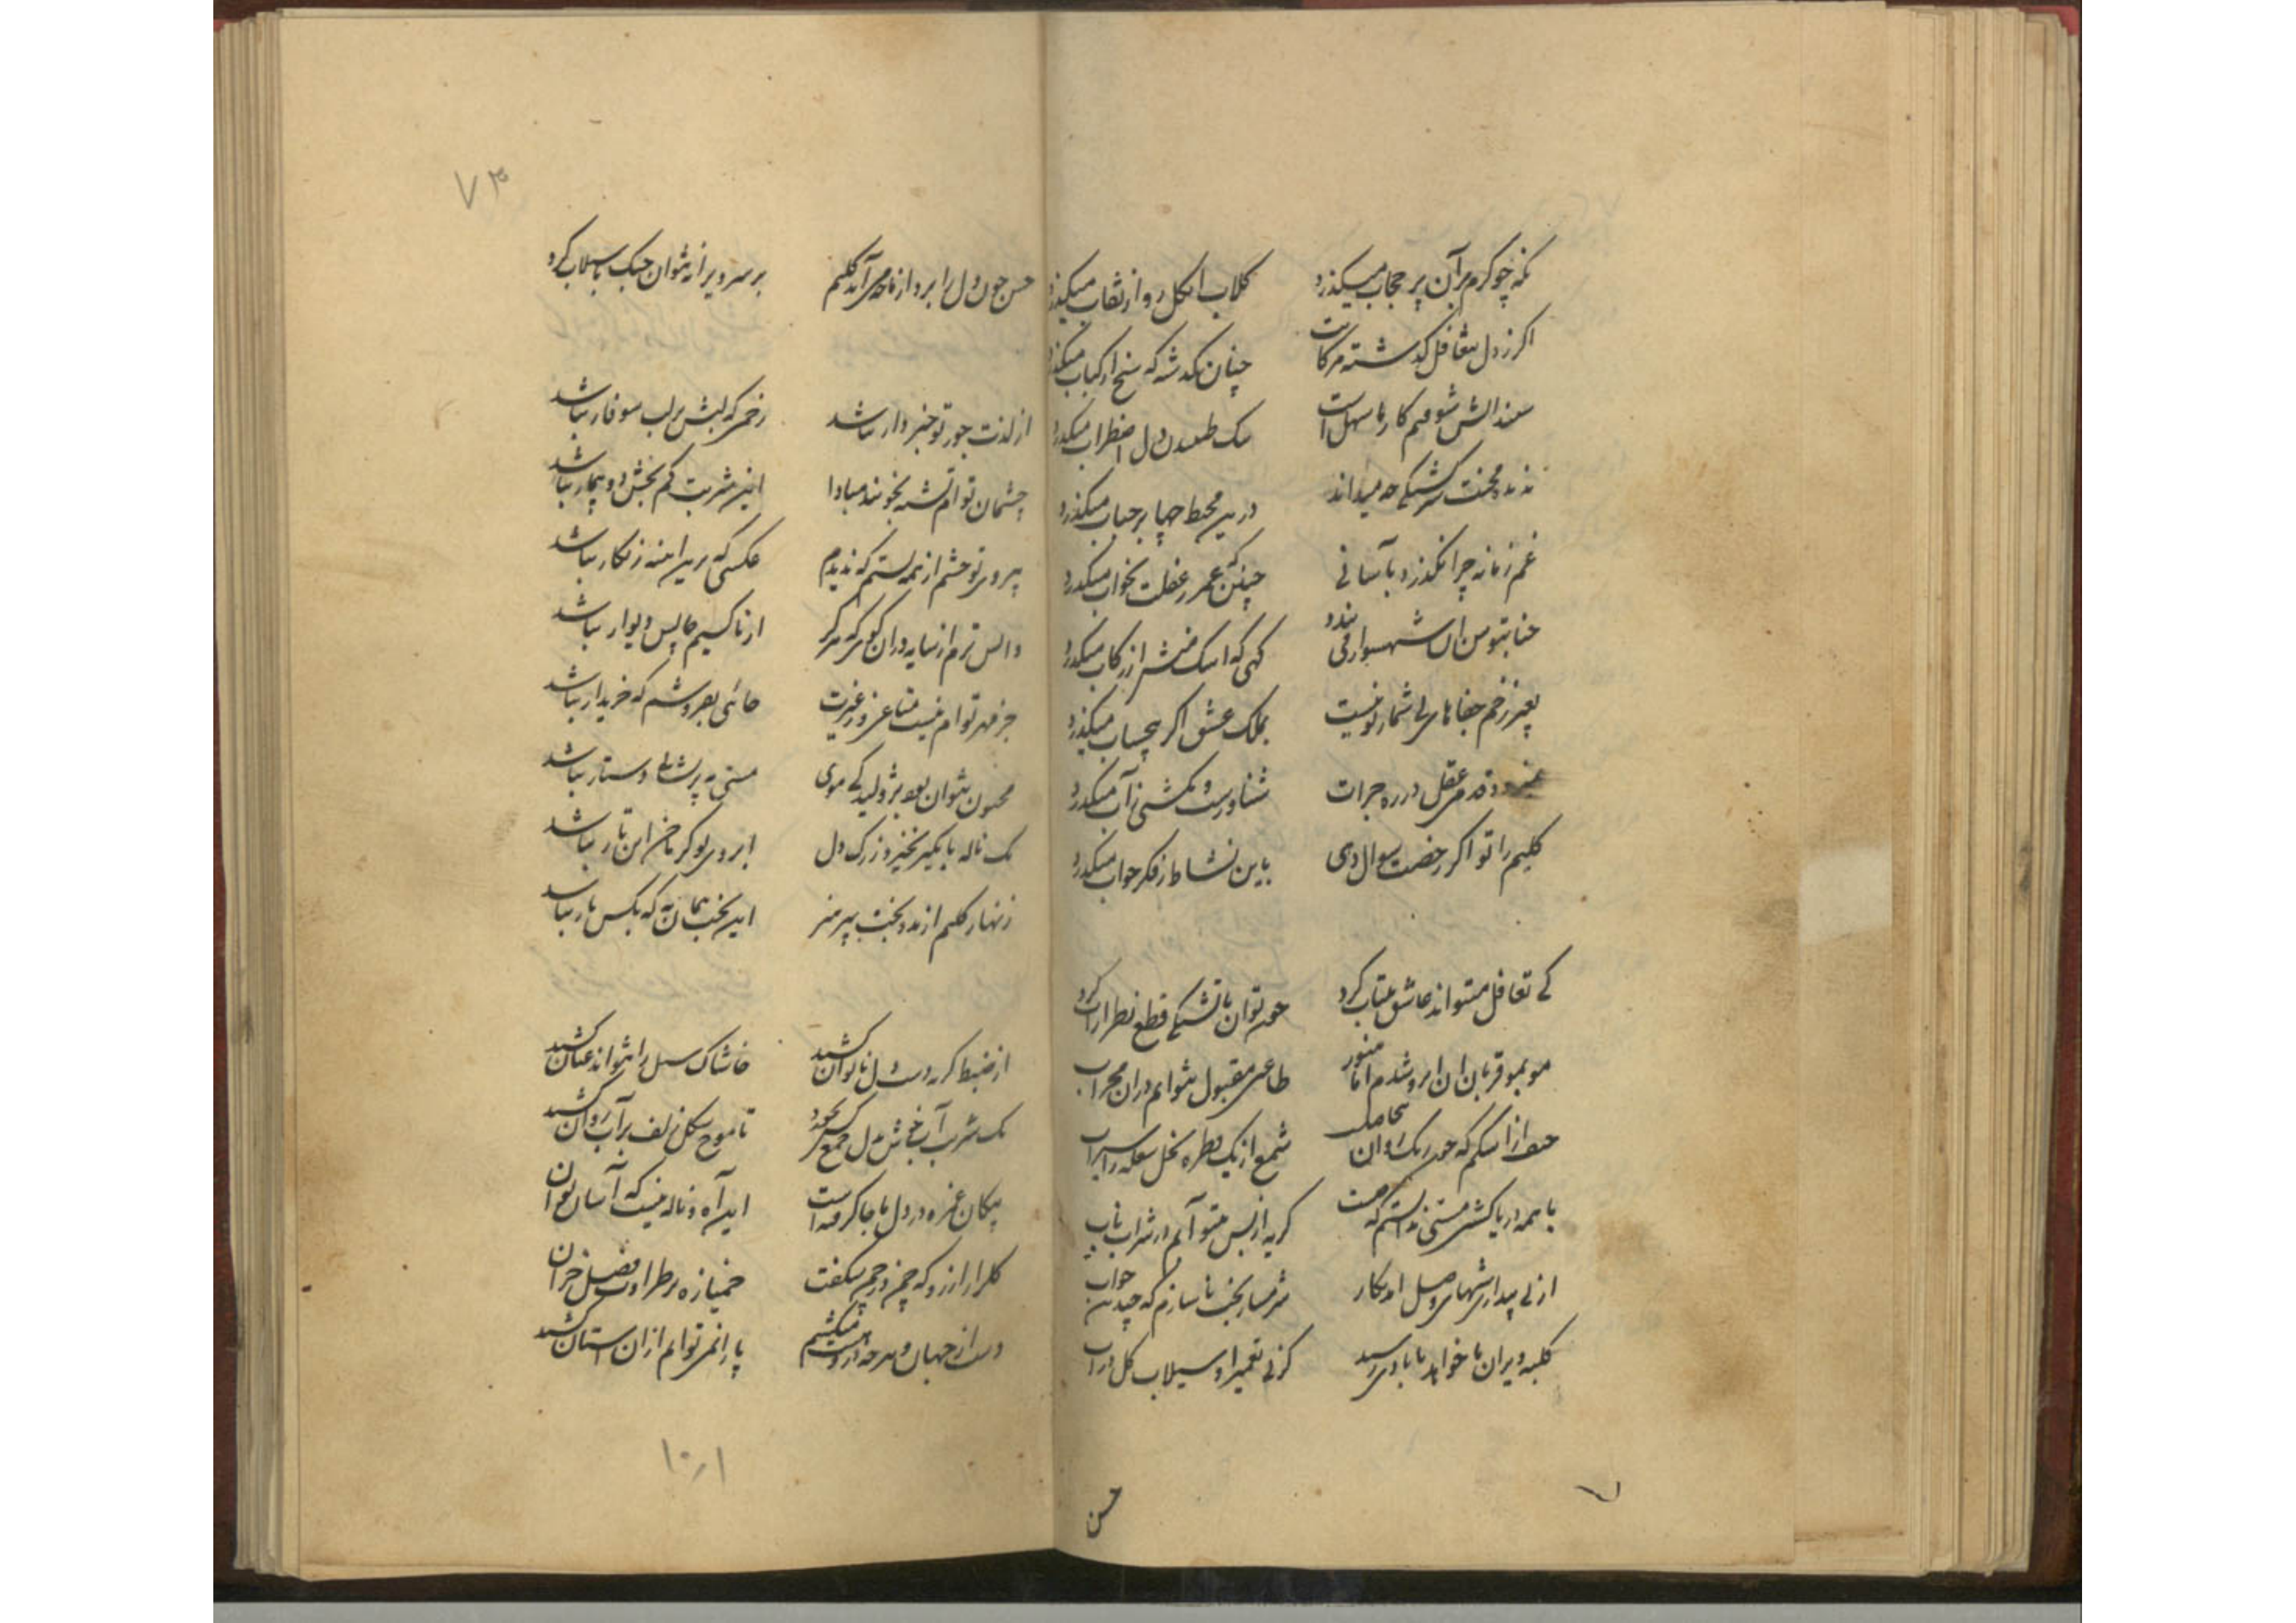 نگه چو گرم بر آن پر حجاب میگذرد
گلاب از گل رو از نقاب میگذرد
اگر ز دل بتغافل گذشته مژگانت
چنان گذشته که سیخ از کباب میگذرد
سهل است
یک طپیدن دل اضطراب میگذرد
ندیده محنت سرگشتگی چه میداند
درین محیط چها بر حباب میگذرد
غم زمانه چرا نگذرد بآسانی
چنین که عمر ز غفلت بخواب میگذرد
حنا بتوسن آن شهسوار می بندد
گهی که اشک منش از رکاب میگذرد
بغیر زخم جفاهای بی شمار تو نیست
بملک عشق اگر بیحساب میگذرد
قدم عقل در ره جرات
شناورست و بکشتی ز آب میگذرد
کلیم را تو اگر رخصت سوال دهی
باین نشاط ز فکر جواب میگذرد
کی تغافل میتواند عاشق بیتاب کرد
چون توان با تشنگی قطع نظر از آب کرد
مو بمو قربان آن ابرو شدم اما هنوز
طاعتی مقبول نتوانم در آن محراب
اشکم که چون ریگ روان بیحاصلست
شمع از یک قطره نخل شعله را سیراب
با همه دریاکشی مستی ندانستم که چیست
گریه از بس متو آنم در شراب ناب
از پی بیداری شبهای وصل او بکار
شرمسار بخت ناسازم که چندین خواب
کلبه ویران ما خواهد بآبادی رسید
کز پی تعمیر او سیلاب گل در آب
حسن
۷۳
حسن چون دل را برد از ناله می آید کلیم
بر سر ویرانه نتوان جنگ با سیلاب کرد
از لذت جور تو خبردار نباشد
زخمی که لبش بر لب سوفار نباشد
چشمان تو ام تشنه بخونند مبادا
این شربت کم بخش دو بیمار نباشد
بی روی تو چشم از همه بستم که ندیدم
عکسی که درین آینه زنگار نباشد
والس ترم از سایه در آن کوی که هرگز
از ناکسیم جا پس دیوار نباشد
جز مهر تو ام نیست متاعی و ز غیرت
جائی بفروشم که خریدار نباشد
مجنون نتوان بود بژولیدگی موی
مستی به پریشانی دستار نباشد
یک ناله پاکیزه نخیزد ز رگ دل
ابروی تو گر ناخن این تار نباشد
زنهار کلیم از مدد بخت بپرهیز
این بخت همان به که بکس یار نباشد
از ضبط گریه دست دل ناتوان کشید
خاشاک سیل را نتواند عنان کشید
یک شربت آب خوش بدل جمع کس نخورد
تا موج شکل زلف بر آب روان کشید
پیکان غمزه در دل ما جا گرفته است
این آه و ناله نیست که آسان توان
گلزار آرزو که چمن در چمن شگفت
خمیازه بر طراوت فصل خزان
دست از جهان و هر چه در و هست میکشم
پا را نمیتوانم از آن آستان کشید
۱۰٫۱